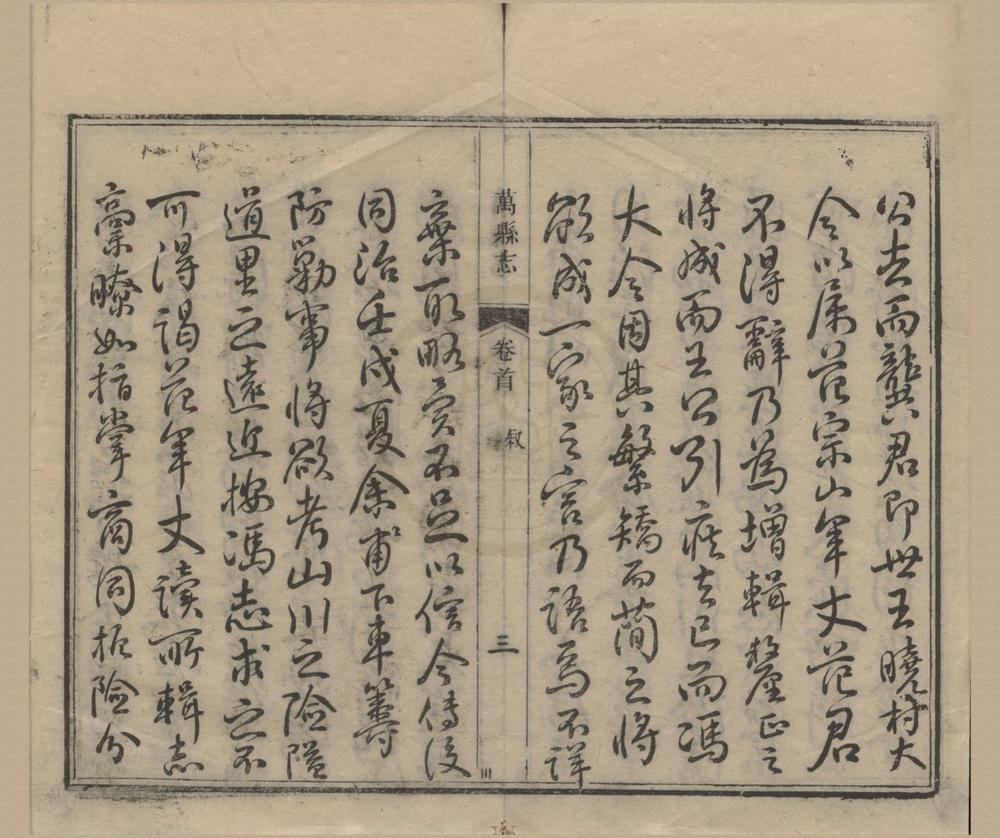 公去而龔君即世王曉村大
令以屬范宗山年丈范君
不得辭乃為增輯釐正之
將成而王公引疾去已而馮
大令因其繁矯而簡之將
欲成一家之言乃語焉不詳
萬縣志
卷首
叙
三
棄取略實不足以信今傳後
同治壬戌夏余甫下車籌
防勦事將欲考山川之險隘
道里之遠近按馮志求之不
可得謁范年丈讀所輯志
稾瞭如指掌商同扼險分